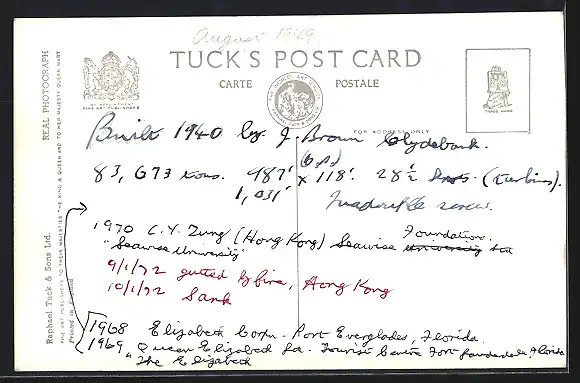 August 1949
TUCK'S POST CARD
CARTE POSTALE
BY APPOINTMENT
FINE ART PUBLISHERS
FOR ADDRESS ONLY
TRADE MARK
REAL PHOTOGRAPH
Raphael Tuck & Sons Ltd
FINE ART PUBLISHERS TO THEIR MAJESTIES THE KING & QUEEN AND TO HER MAJESTY QUEEN MARY
Printed in England
Built 1940 by J. Brown Clydebank.
83,673 tons. 987' (b.p.) x 118'. 28½ knots. (turbines).
1,031'
Quadruple screw.
1970 C.Y. Tung (Hong Kong) Seawise Foundation.
"Seawise University"
9/1/72 gutted by fire, Hong Kong
10/1/72 Sank
1968 Elizabeth Corpn. Port Everglades, Florida.
1969 Queen Elizabeth Ld. Tourist Centre Fort Lauderdale, Florida
"The Elizabeth